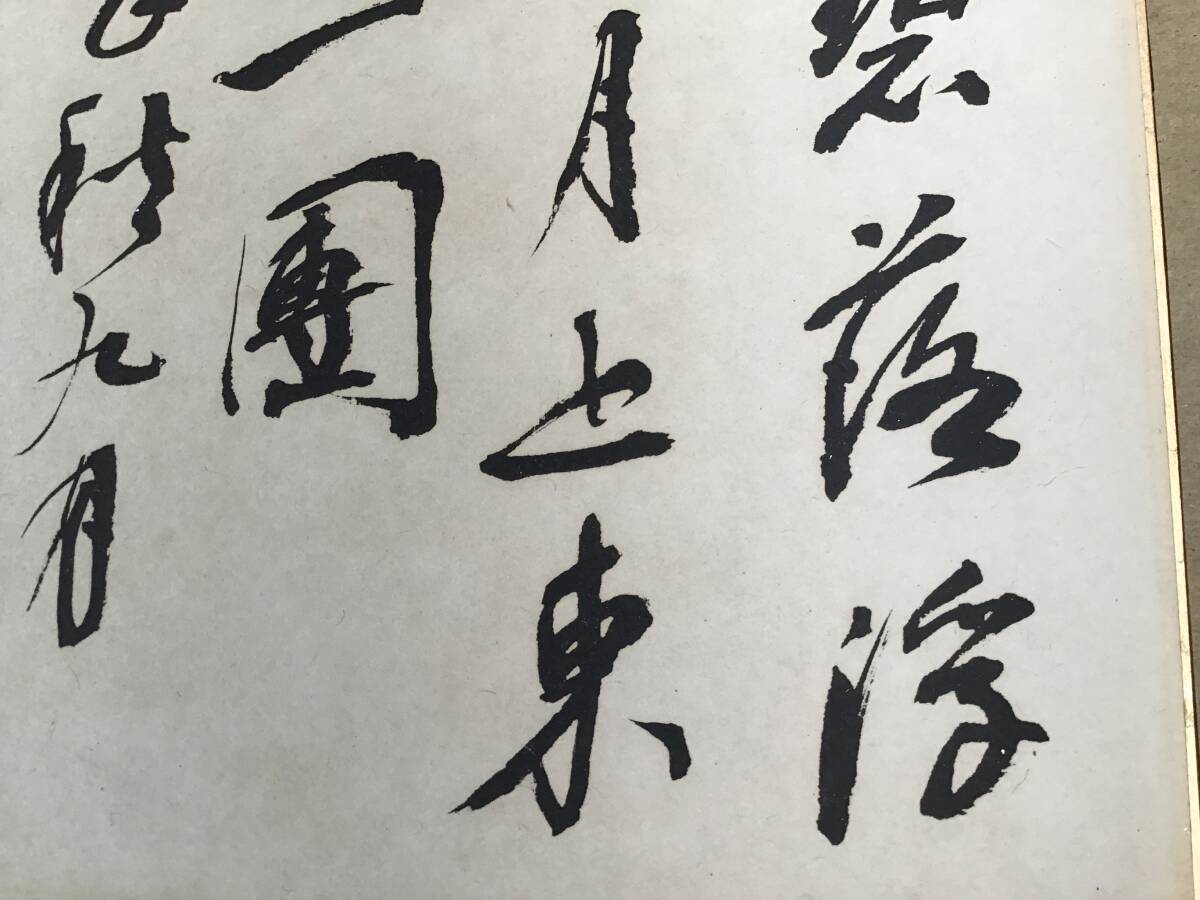 碧落浮
月上東
一團
秋九月